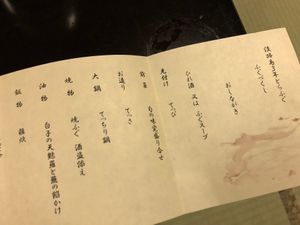 淡路島3年とらふく
ふくづくし
おしながき
ひれ酒 又は ふくスープ
先付け てっぴ
前菜 旬の味覚盛り合せ
お造り てっさ
大鍋 てっちり鍋
焼物 焼ふく 酒盗添え
油物 白子の天麩羅と蕪の餡かけ
飯物 雑炊